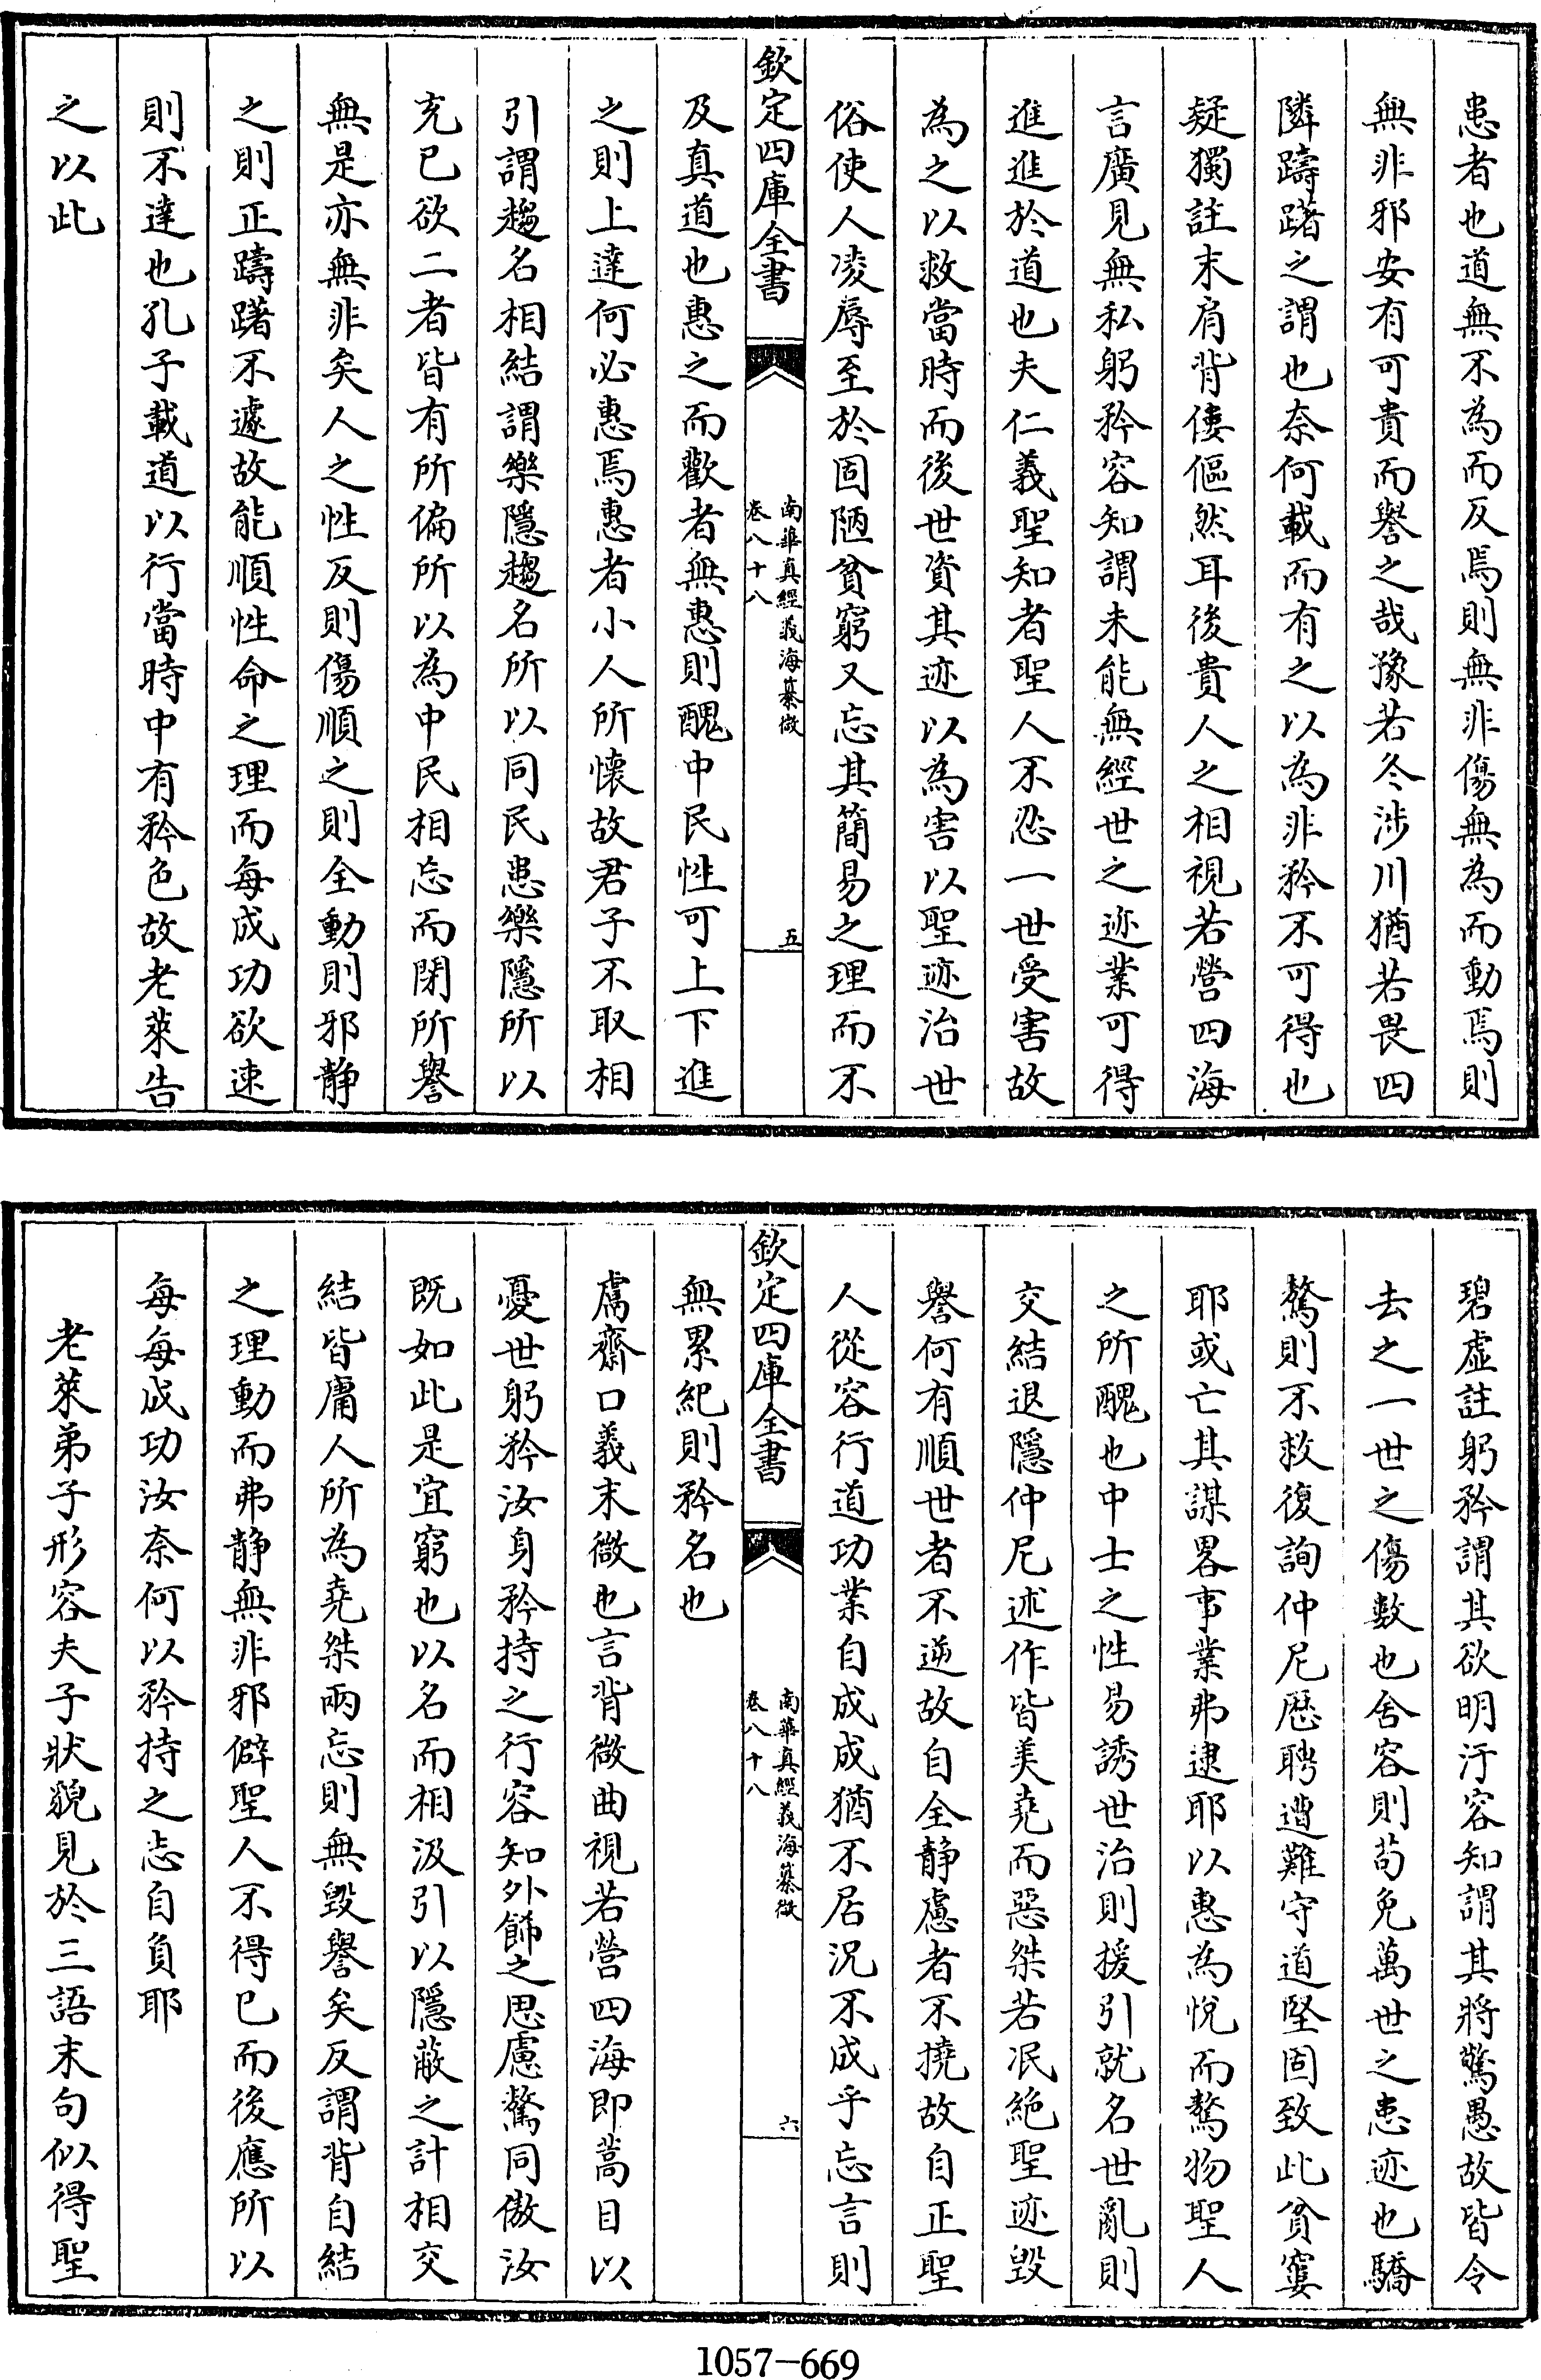 患者也道無不為而反焉則無非傷無為而動焉則
無非邪安有可貴而譽之哉豫若冬涉川猶若畏四
隣躊躇之謂也奈何載而有之以為非矜不可得也
疑獨註末肩背僂傴然耳後貴人之相視若營四海
言廣見無私躬矜容知謂未能無經世之迹業可得
進進於道也夫仁義聖知者聖人不忍一世受害故
為之以救當時而後世資其迹以為害以聖迹治世
俗使人凌辱至於固陋貧窮又忘其簡易之理而不
欽定四庫全書
南華真經義海纂微
卷八十八
五
及真道也惠之而歡者無惠則醜中民性可上下進
之則上達何必惠焉惠者小人所懷故君子不取相
引謂趨名相結謂樂隱趨名所以同民患樂隱所以
充已欲二者皆有所偏所以為中民相忘而閉所譽
無是亦無非矣人之性反則傷順之則全動則邪静
之則正躊躇不遽故能順性命之理而每成功欲速
則不達也孔子載道以行當時中有矜色故老萊告
之以此
碧虛註躬矜謂其欲明汙容知謂其將驚愚故皆令
去之一世之傷數也舍容則苟免萬世之患迹也驕
驁則不救復詢仲尼厯聘遭難守道堅固致此貧窶
耶或亡其謀畧事業弗逮耶以惠為悅而驁物聖人
之所醜也中士之性易誘世治則援引就名世亂則
交結退隱仲尼述作皆美堯而惡桀若泯絶聖迹毀
譽何有順世者不逆故自全静慮者不撓故自正聖
人從容行道功業自成成猶不居况不成乎忘言則
欽定四庫全書
南華真經義海纂微
卷八十八
六
無累紀則矜名也
鬳齋口義末微也言背微曲視若營四海即蒿目以
憂世躬矜汝身矜持之行容知外飾之思慮驁同傲汝
既如此是宜窮也以名而相汲引以隱蔽之計相交
結皆庸人所為堯桀兩忘則無毀譽矣反謂背自結
之理動而弗静無非邪僻聖人不得已而後應所以
每每成功汝奈何以矜持之志自負耶
老萊弟子形容夫子狀貌見於三語末句似得聖
1057-669